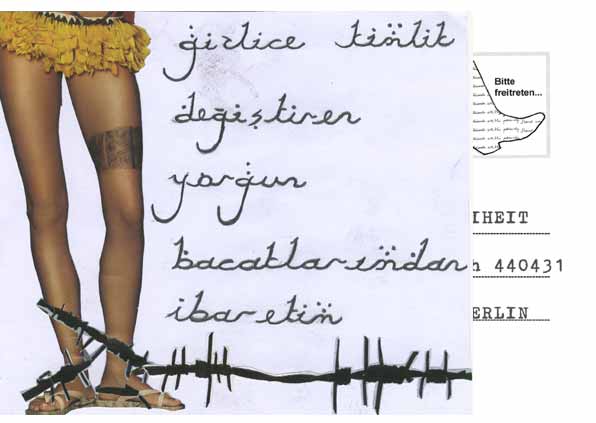 gizlice kimlik
değiştiren
yorgun
bacaklarımdan
ibaretim
Bitte
freitreten...
HEIT
h 440431
ERLIN